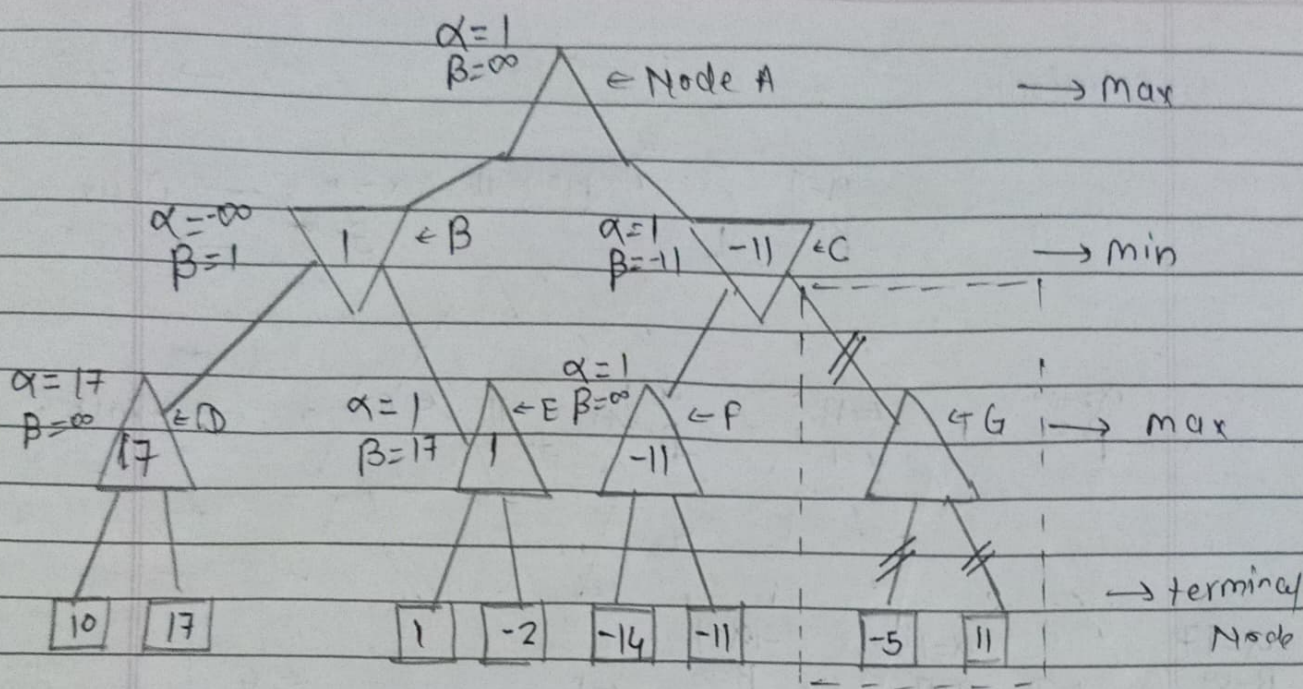 α=1
β=∞
← Node A
→ max
α=-∞
β=1
1
← B
α=1
β=-11
-11
← C
→ min
α=17
β=∞
17
← D
α=1
β=17
1
← E
α=1
β=∞
-11
← F
← G
→ max
10 17 1 -2 -14 -11 -5 11
→ terminal
Node